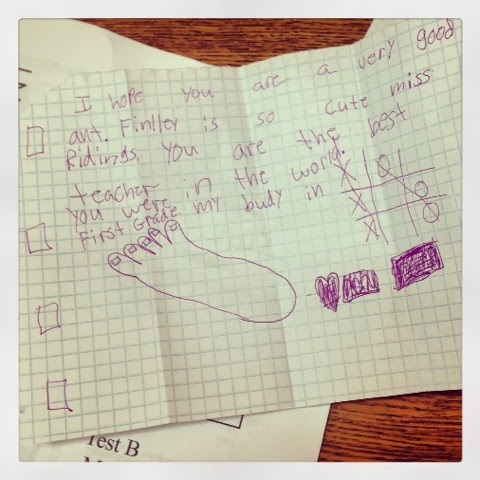 I hope you are a very good
ant. Finlley is so cute miss
Ridings. You are the best
teacher in the world.
You were my budy in
First Grade.
Test B